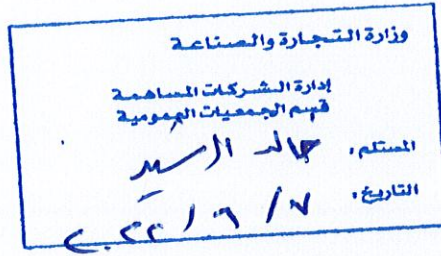 وزارة التجارة والصناعة
إدارة الشركات المساهمة
قسم الجمعيات العمومية
المستلم: خالد الرشيد
التاريخ: ٧ / ٦ / ٢٠٢٢